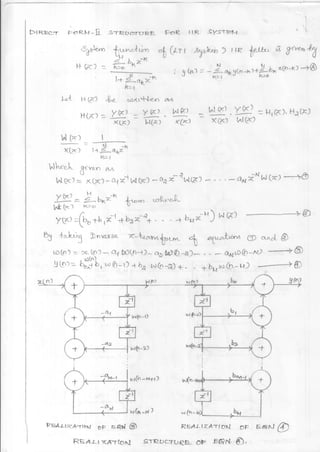 DIRECT FORM-II STRUCTURE FOR IIR SYSTEM
System function of (LTI System) IIR filter is given by
H(z) = Σ(k=0 to M) b_k z^-k / 1+ Σ(k=1 to N) a_k z^-k ; y(n) = -Σ(k=1 to N) a_k y(n-k) + Σ(k=0 to M) b_k x(n-k) → (A)
Let H(z) be written as
H(z) = Y(z)/X(z) = Y(z)/W(z) · W(z)/X(z) = W(z)/X(z) · Y(z)/W(z) = H1(z). H2(z)
W(z)/X(z) = 1 / 1+ Σ(k=1 to N) a_k z^-k
Which given as
W(z) = X(z) - a1 z^-1 W(z) - a2 z^-2 W(z) - . . . - aN z^-N W(z) → (1)
Y(z)/W(z) = Σ(k=0 to M) b_k z^-k from which
Y(z) = (b0 + b1 z^-1 + b2 z^-2 + . . . + bM z^-M) W(z) → (2)
By taking Inverse z-transform of equation (1) and (2)
w(n) = x(n) - a1 w(n-1) - a2 w(n-2) - . . . - aN w(n-N) → (3)
y(n) = b0 w(n) + b1 w(n-1) + b2 w(n-2) + . . + bM w(n-M) → (4)
x(n) w(n) w(n) b0 y(n)
+ + 
z^-1 z^-1
+ -a1 w(n-1) w(n-1) b1 +
z^-1 z^-1
+ -a2 w(n-2) w(n-2) b2 +
+ -aN-1 w(n-N+1) bM-1 +
z^-1 z^-1
-aN w(n-N) w(n-M) bM
REALIZATION OF EQN (3) REALIZATION OF EQN (4)
REALIZATION STRUCTURE OF EQN